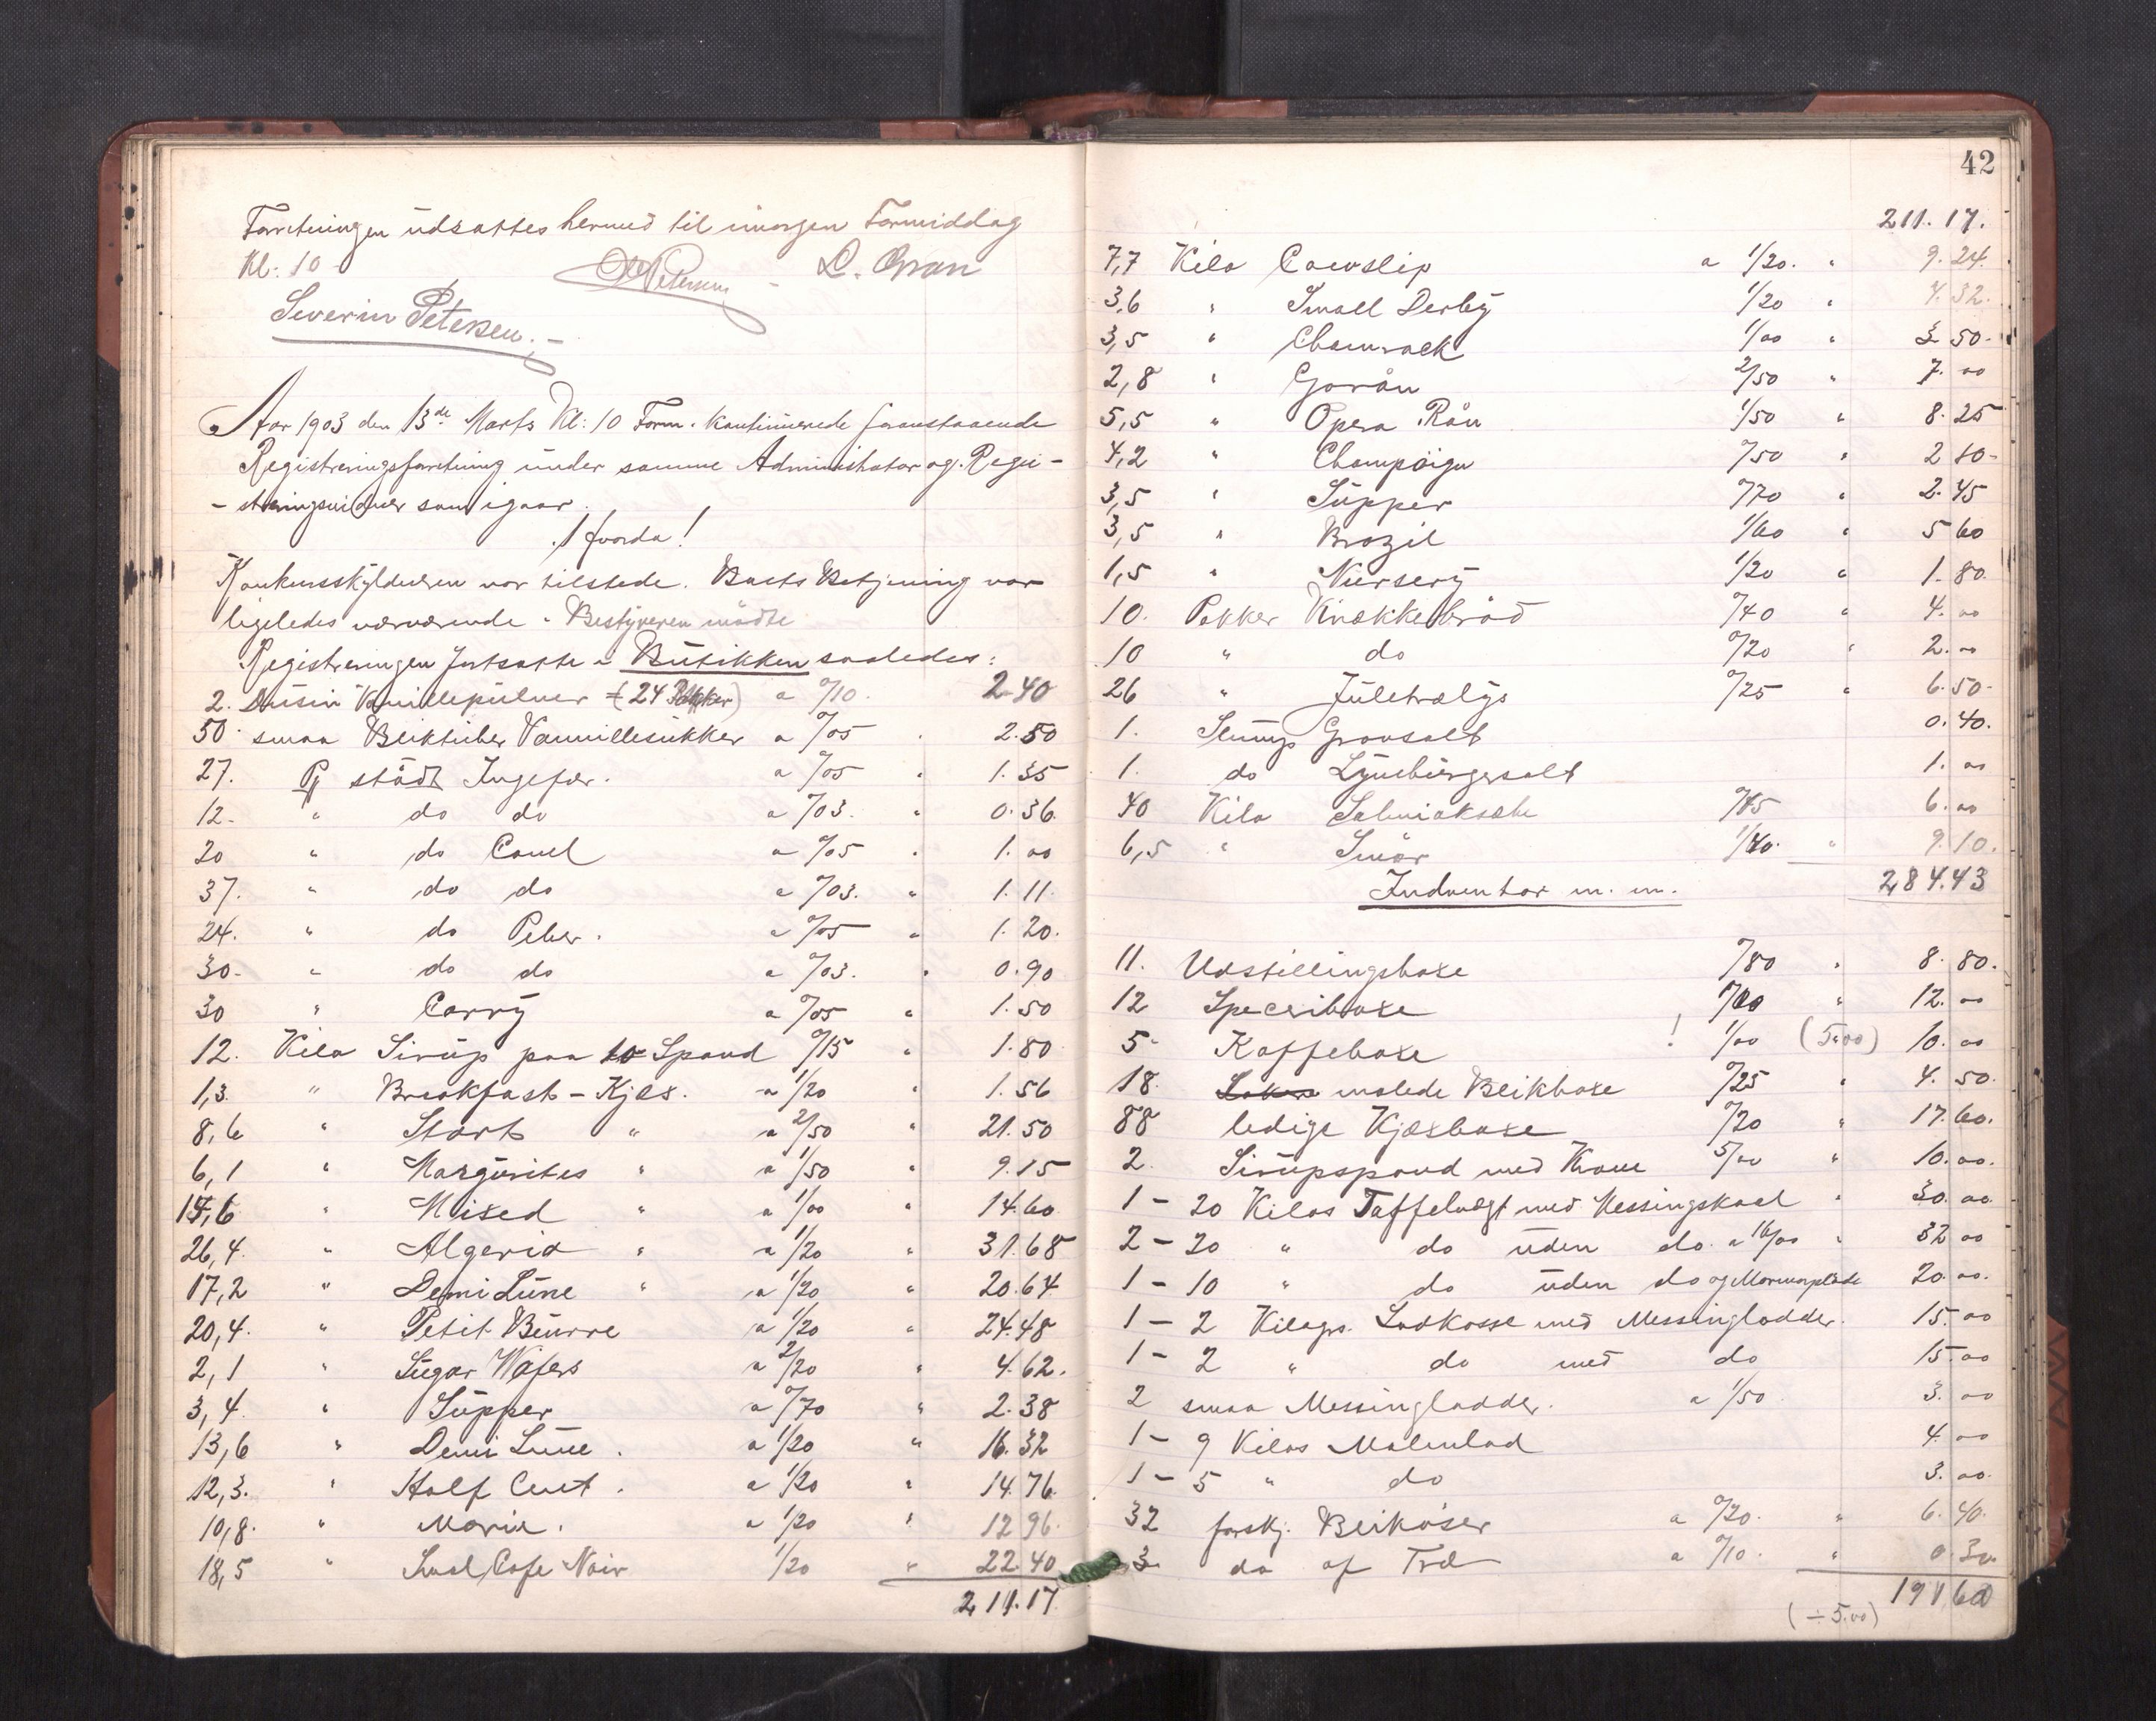 Forretningen udsattes hermed til imorgen Formiddag
Kl: 10
O Petersen - L. Gran
Severin Petersen.
Aar 1903 den 13de Marts Kl: 10 Form. kontinuerede foranstaaende
Registreringsforretning under samme Administrator og Regi-
-streringsvidner som igaar.
Hvorda!
Konkursskyldneren var tilstede. Boets Betjening var
ligeledes nærværende - Bestyreren mødte
Registreringen fortsatte i Butikken saaledes:
2. Dusin Vanillepulver (24 Pakker) a 0/10. 2.40
50 smaa Blektuber Vannillesukker a 0/05 2.50
27. Pj stødt Ingefær. a 0/05 " 1.35
12. " do do a 0/03. " 0.36
20 " do Canel a 0/05 " 1.00
37. " do do a 0/03. " 1.11
24. " do Peber. a 0/05 " 1.20.
30. " do do a 0/03. " 0.90
30 " Carry a 0/05 " 1.50
12. Kilo Sirup paa 10 Spand 0/15 " 1.80
1,3 " Breakfast-Kjæx. a 1/20 " 1.56
8,6 " Start " a 2/50 " 21.50
6,1 " Margurites " a 1/50 " 9.15
14,6 " Mixed " a 1/00 " 14.60
26,4. " Algeria " a 1/20 " 31.68
17,2 " Demi Lune " a 1/20 " 20.64
20,4. " Petit Beurre a 1/20 " 24.48
2,1 " Sugar Wafers a 2/20 " 4.62.
3,4. " Supper a 0/70 " 2.38
13,6 " Demi Lune. a 1/20 " 16.32
12,3. " Half Cent. a 1/20 " 14.76
10,8. " Maria. a 1/20 " 12 96.
18,5 " Smal Cafe Noir 1/20 " 22.40
211.17
42
211.17.
7,7 Kilo Cowslip a 1/20. " 9.24.
3,6 " Small Derby 1/20 " 4.32.
3,5 " Chamrock 1/00 " 3 50-
2,8 " Gorån 2/50 " 7.00
5,5 " Opera Rån 1/50 " 8.25
4,2 " Champaign 0/50 " 2 10-
3,5 " Supper 0/70 " 2.45
3,5 " Brazil 1/60 " 5 60
1,5 " Nursery 1/20 " 1.80.
10. Pakker Knækkebrød 0/40 " 4.00
10 " do 0/20 " 2.00
26 " Juletrælys 0/25 " 6.50-
1. Slump Grovsalt 0.40.
1. do Lyneburgersalt 1.00
40 Kilo Salmiaksoda 0/15 6.00
6,5 " Smør 1/40. " 9.10.
284.43
Indventar m. m.
11. Udstillingsboxe 0/80 " 8.80.
12 Speceriboxe 1/00 " 12.00
5 Kaffeboxe ! 1/00 (5.00) 10.00
18. malede Blikboxe 0/25 " 4.50.
88 ledige Kjæxboxe 0/20 " 17.60.
2. Sirupspand med Krane 5/00 " 10.00.
1 - 20 Kilos Taffelvægt med Messingskaal " 30.00
2 - 20 " do uden do. a 16/00 " 32 00
1 - 10 " do uden do og Marmorplade 20.00.
1 - 2 Kilogr. Lodkasse med Messinglodder. 15.00
1 - 2 " do med do 15.00
2 smaa Messinglodder. a 1/50. 3.00
1 - 9 Kilos Malmlod 4.00
1 - 5 " do 3.00.
32 forskj. Blikøser a 0/20. " 6.40.
3 do af Træ a 0/10. " 0.30.
191 60
(÷ 5.00)